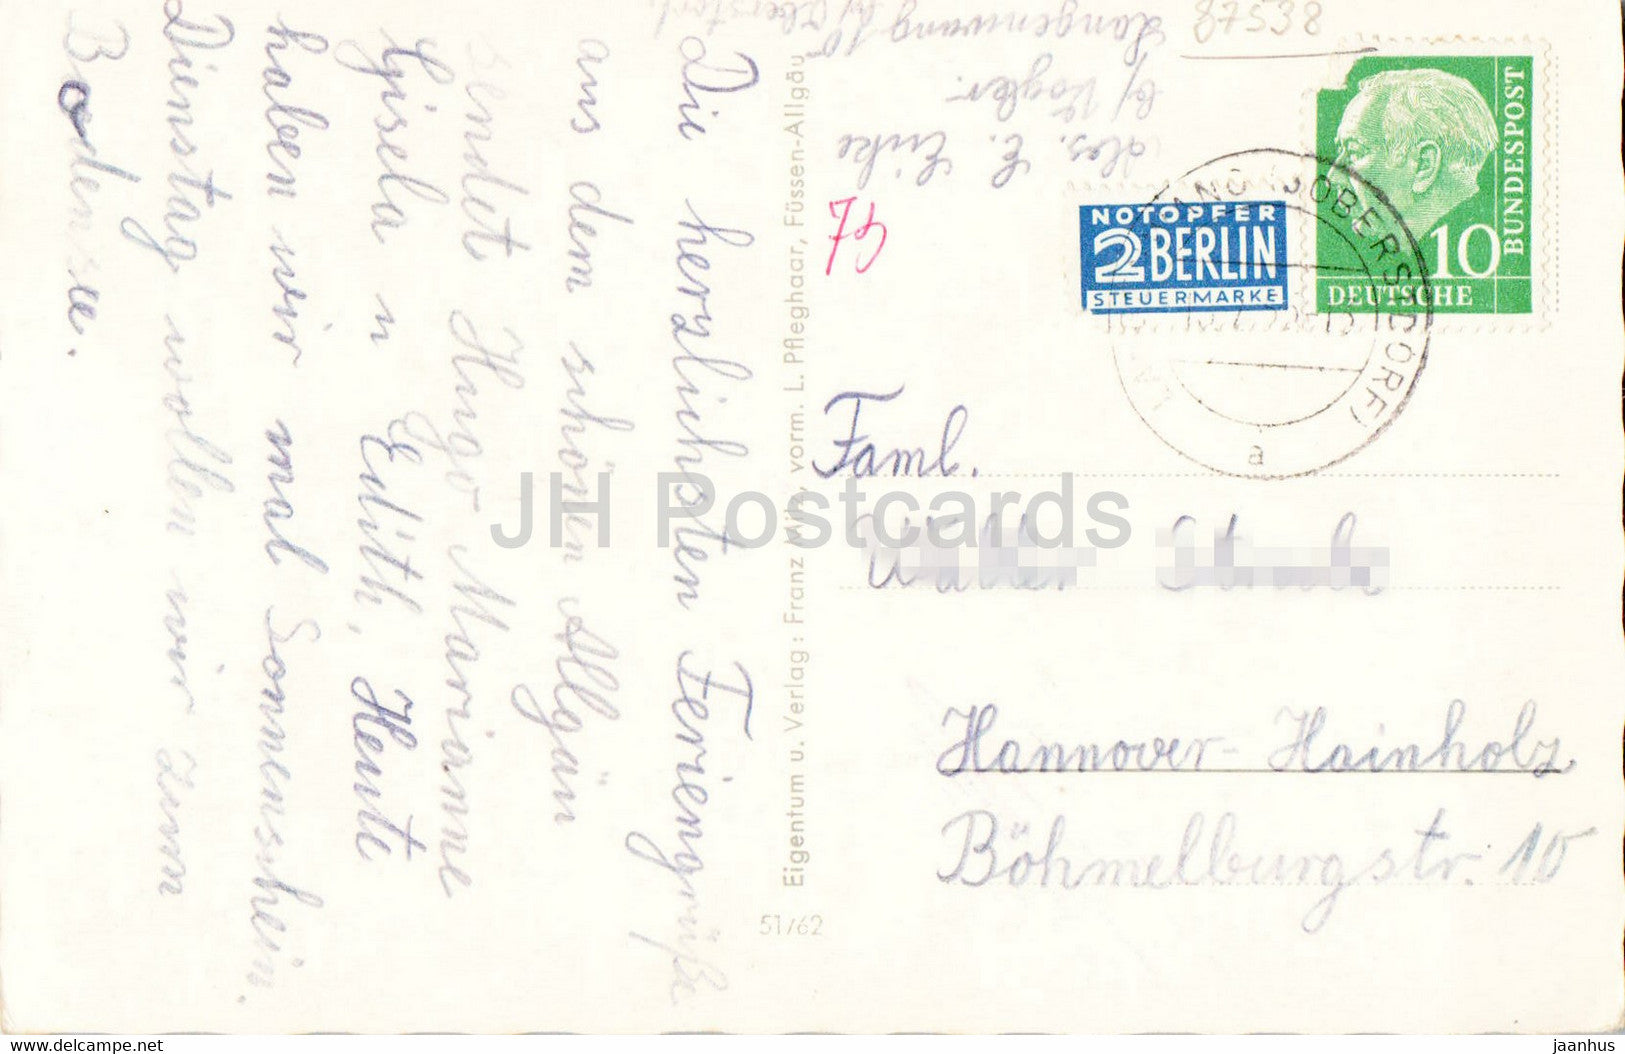 Die herzlichsten Feriengrüße
aus dem schönen Allgäu
sendet Hugo Marianne
Gisela u Edith, Heute
haben wir mal Sonnenschein.
Dienstag wollen wir zum
Bodensee.
Eigentum u. Verlag: Franz Milz, vorm. L. Pfleghaar, Füssen-Allgäu
51/62
Abs. E.
b/ Vogler
Langenwang 10
b/ Oberstorf.
87538
75
NOTOPFER
2 BERLIN
STEUERMARKE
DEUTSCHE
BUNDESPOST
10
OBERSTDORF)
a
Faml.
Hannover-Hainholz
Böhmelburgstr. 10
JH Postcards
https://www.delcampe.net
jaanhus